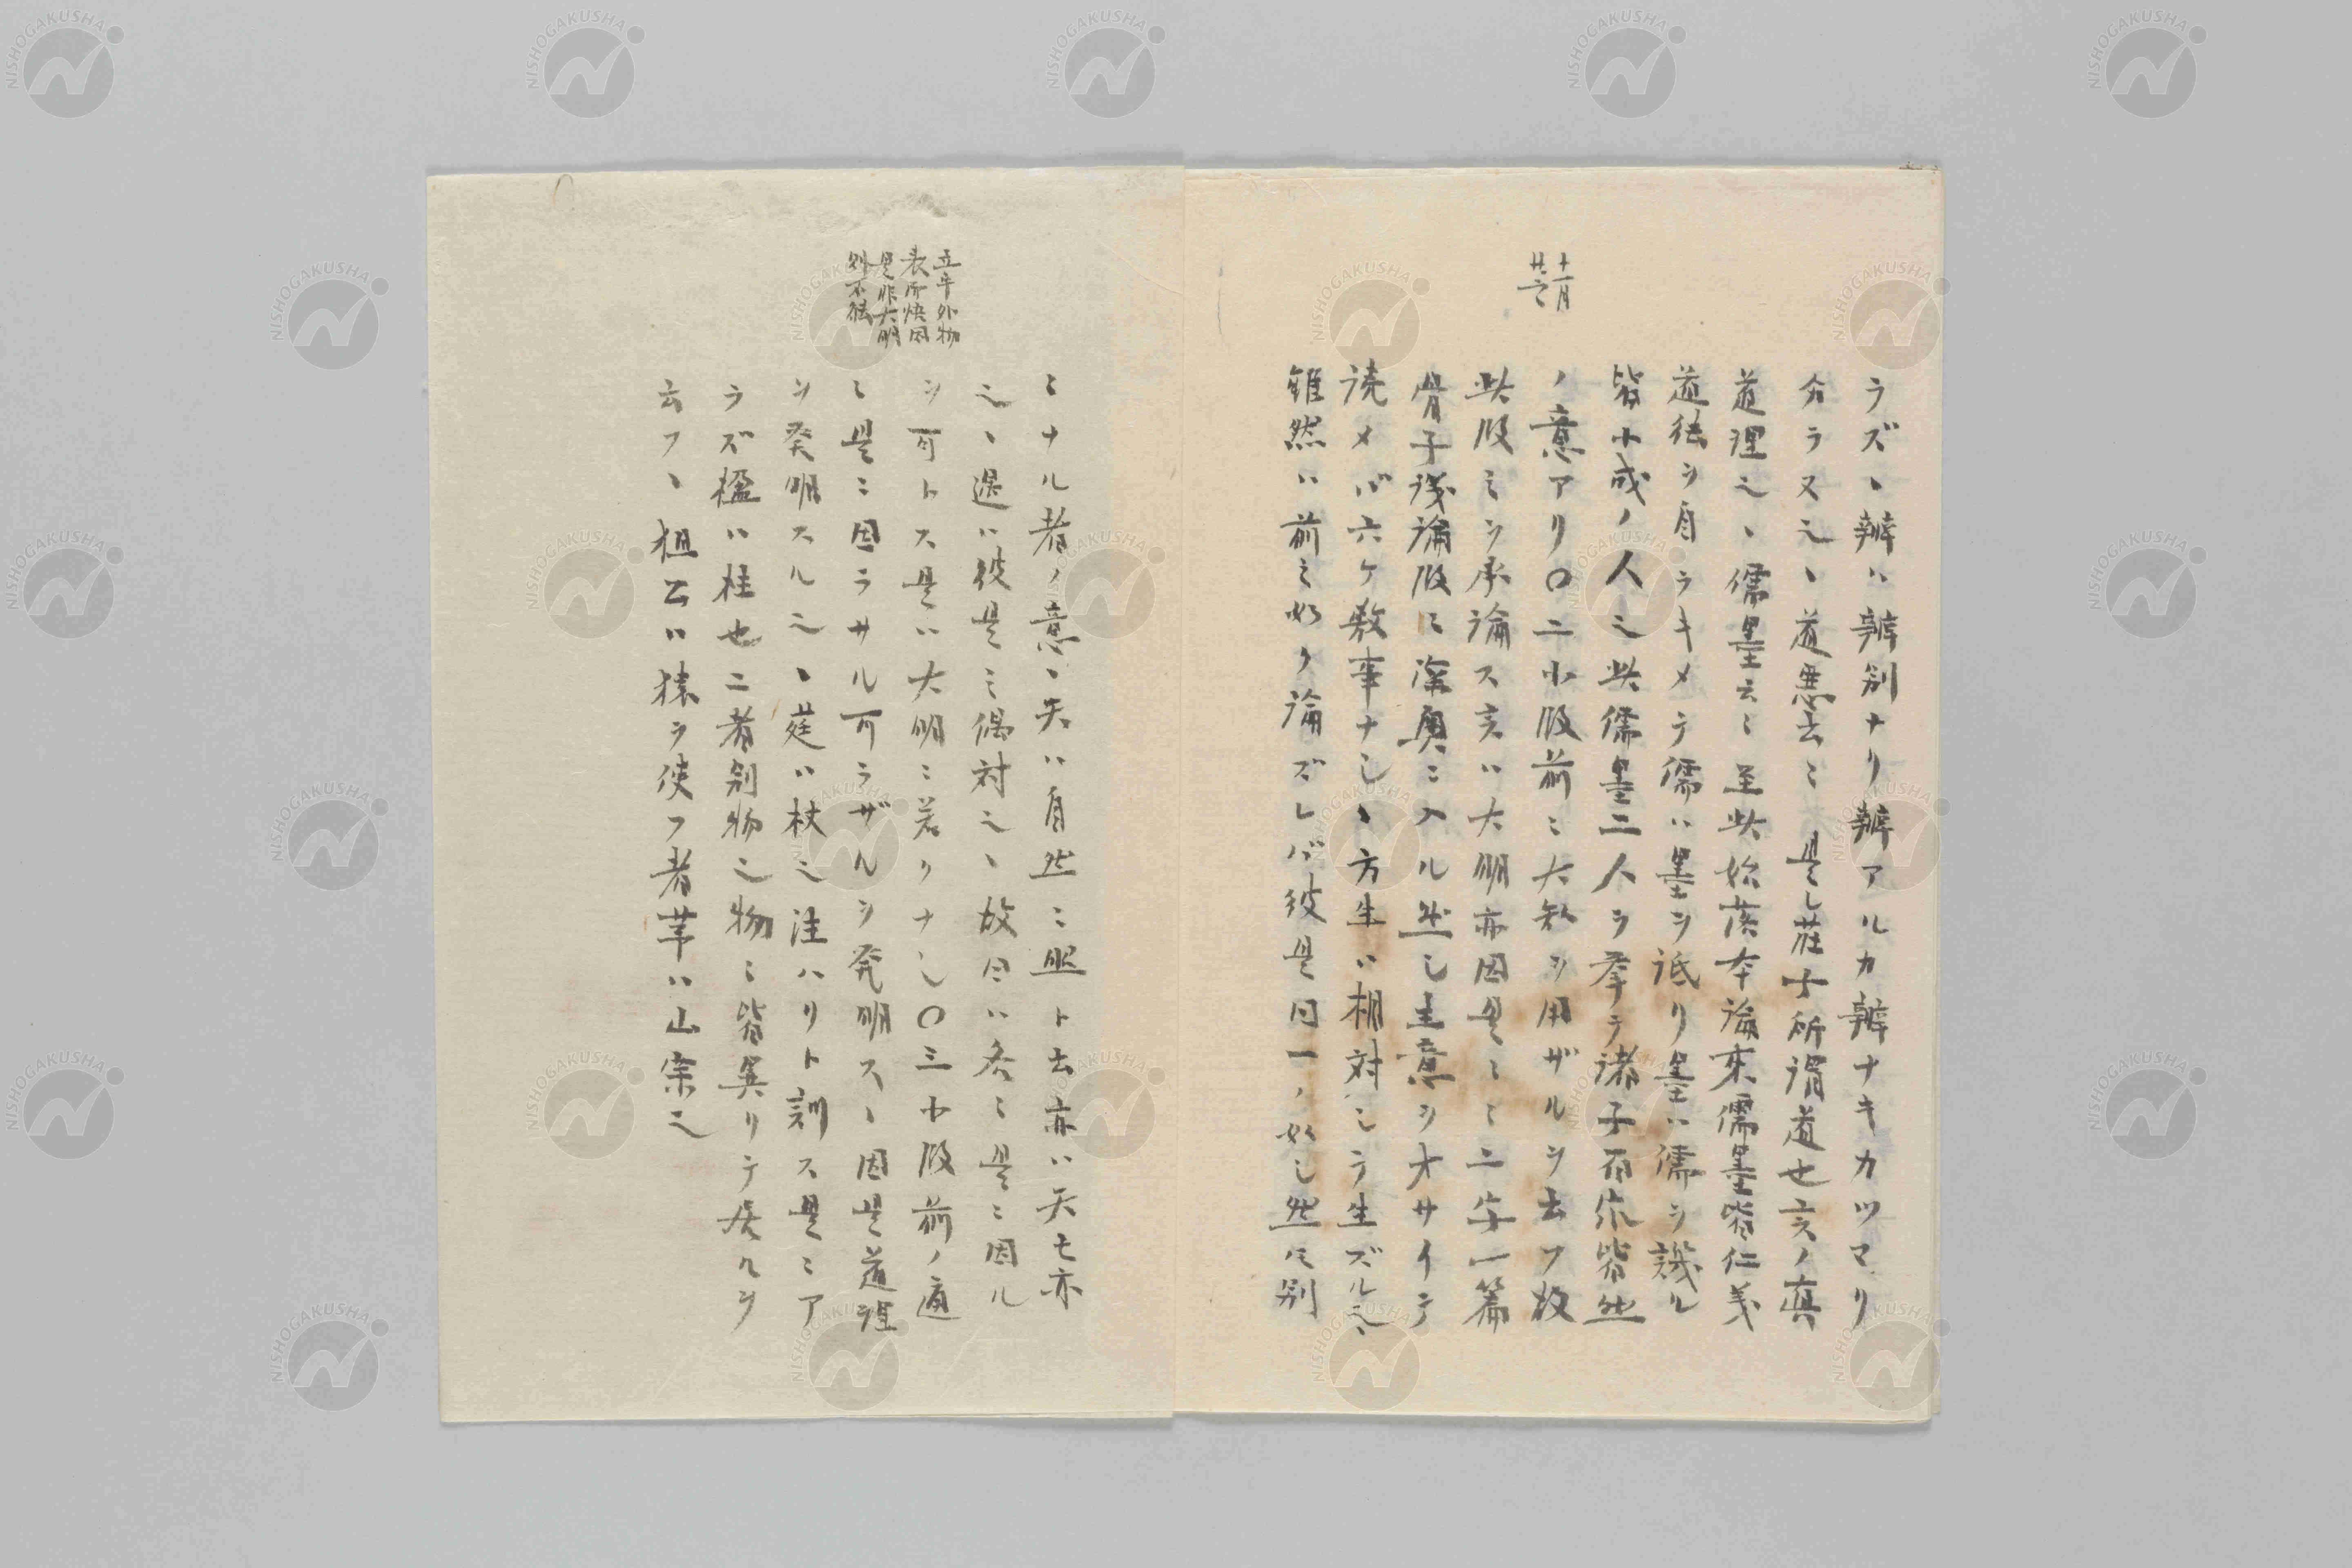 十一月
廿三
ラズヽ辨ハ辨別ナリ辨アルカ辨ナキカツマリ
分ラヌ也ヽ道悪去ニ 是レ莊子所謂道也言ノ真
道理也ヽ儒墨云ニ至此始落本論來儒墨皆仁義
道徳ヲ自ラキメテ儒ハ墨ヲ詆リ墨ハ儒ヲ譏ル
皆小成ノ人也此儒墨二人ヲ挙テ諸子百家皆然
ノ意アリ〇二小段前ニ大知ヲ用ザルヲ去フ故
此段ミヲ承論ス言ハ大明亦因是ミニ二字一篇
骨子議論段ニ深奥ニ入ル然シ主意ヲオサイテ
読メバ六ケ敷事ナシヽ方生ハ相対シテ生ズル也ヽ
雖然ハ前ミ如ク論ズレバ彼是同一ノ如シ然ニ別
立乎外物
表所快因
是非大明
外不能
ミナル者ノ意ヽ天ハ自然ニ照ト云亦ハ天モ亦
也ヽ還ハ彼是ミ偶対也ヽ故曰ハ各ミ是ニ因ル
ヲ可トス是ハ大明ニ若クナシ〇三小段前ノ適
ミ是ニ因ラサル可ラザルヲ発明スヽ因是道理
ヲ発明スル也ヽ莛ハ杖也注ハリト訓ス是ミア
ラズ楹ハ柱也二者別物也物ミ皆異リテ居ルヲ
云フヽ狙公ハ猿ヲ使フ者芧ハ山栗也